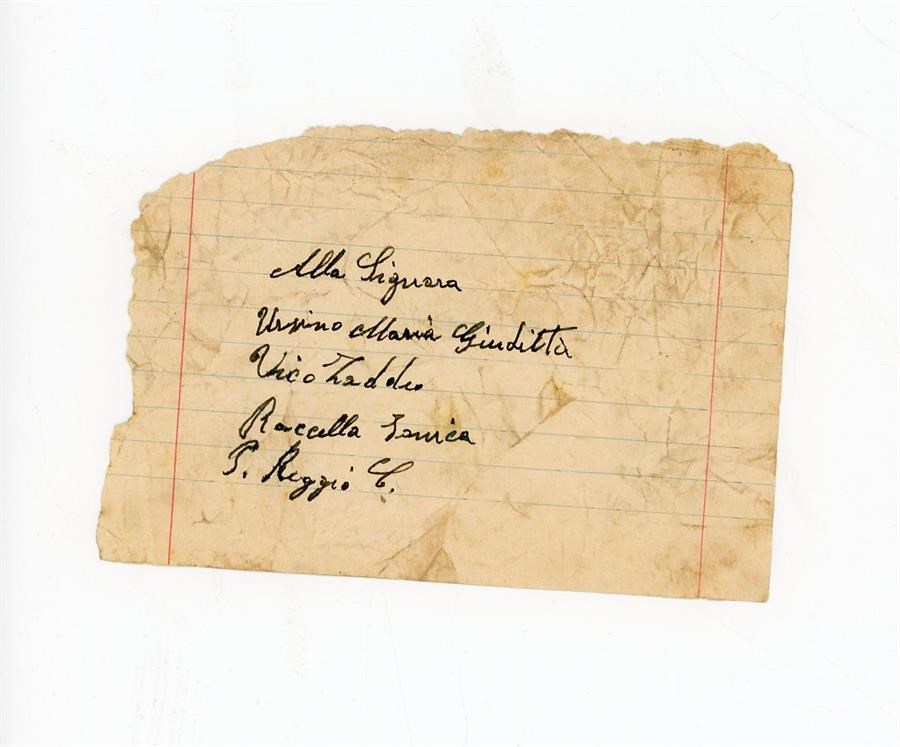 Alla Signora
Ursino Maria Giuditta
Vico Taddeo
Roccella Ionica
P. Reggio C.